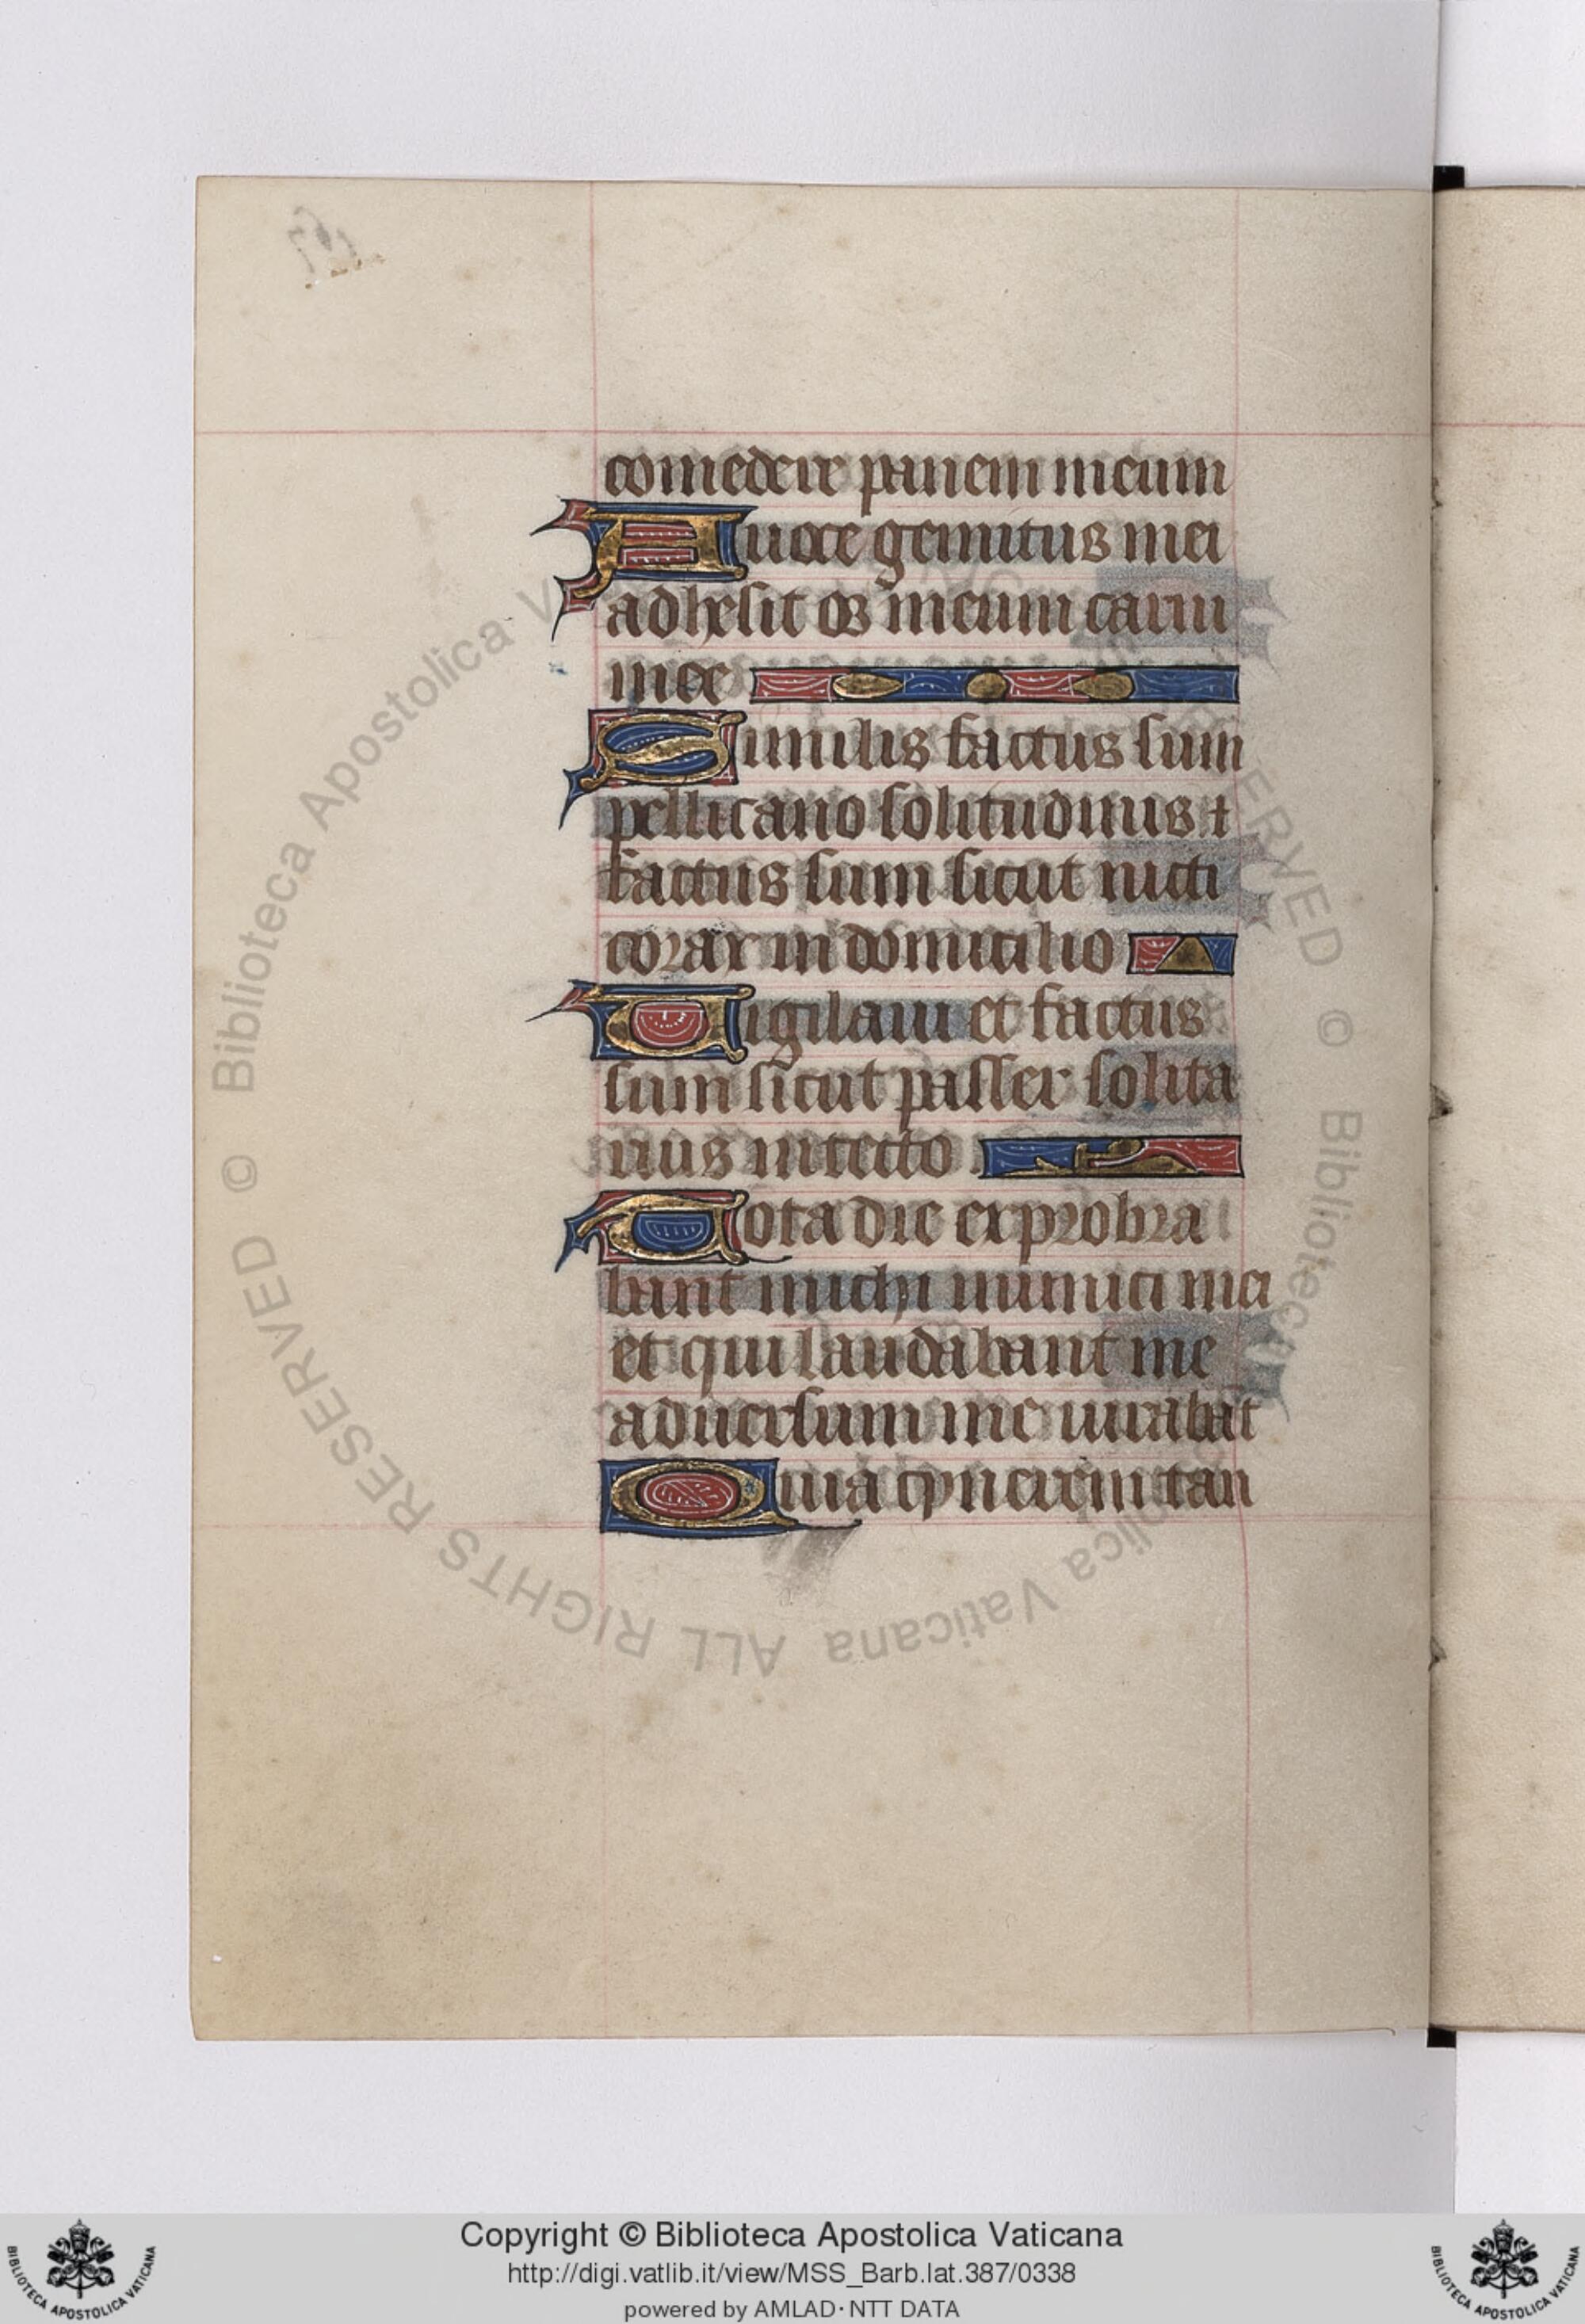 comedere panem meum
A uoce gemitus mei
adhesit os meum carni
mee
Similis factus sum
pellicano solitudinis ⁊
factus sum sicut nicti
corax in domicilio
Vigilaui et factus
sum sicut passer solita
rius in tecto
Tota die exproba
bant michi inimici mei
et qui laudabant me
aduersum me iurabāt
Quia cynerem tan
© Biblioteca Apostolica Vaticana ALL RIGHTS RESERVED © Biblioteca Apostolica Vaticana ALL RIGHTS RESERVED
Copyright © Biblioteca Apostolica Vaticana
http://digi.vatlib.it/view/MSS_Barb.lat.387/0338
powered by AMLAD·NTT DATA
BIBLIOTECA APOSTOLICA VATICANA
BIBLIOTECA APOSTOLICA VATICANA